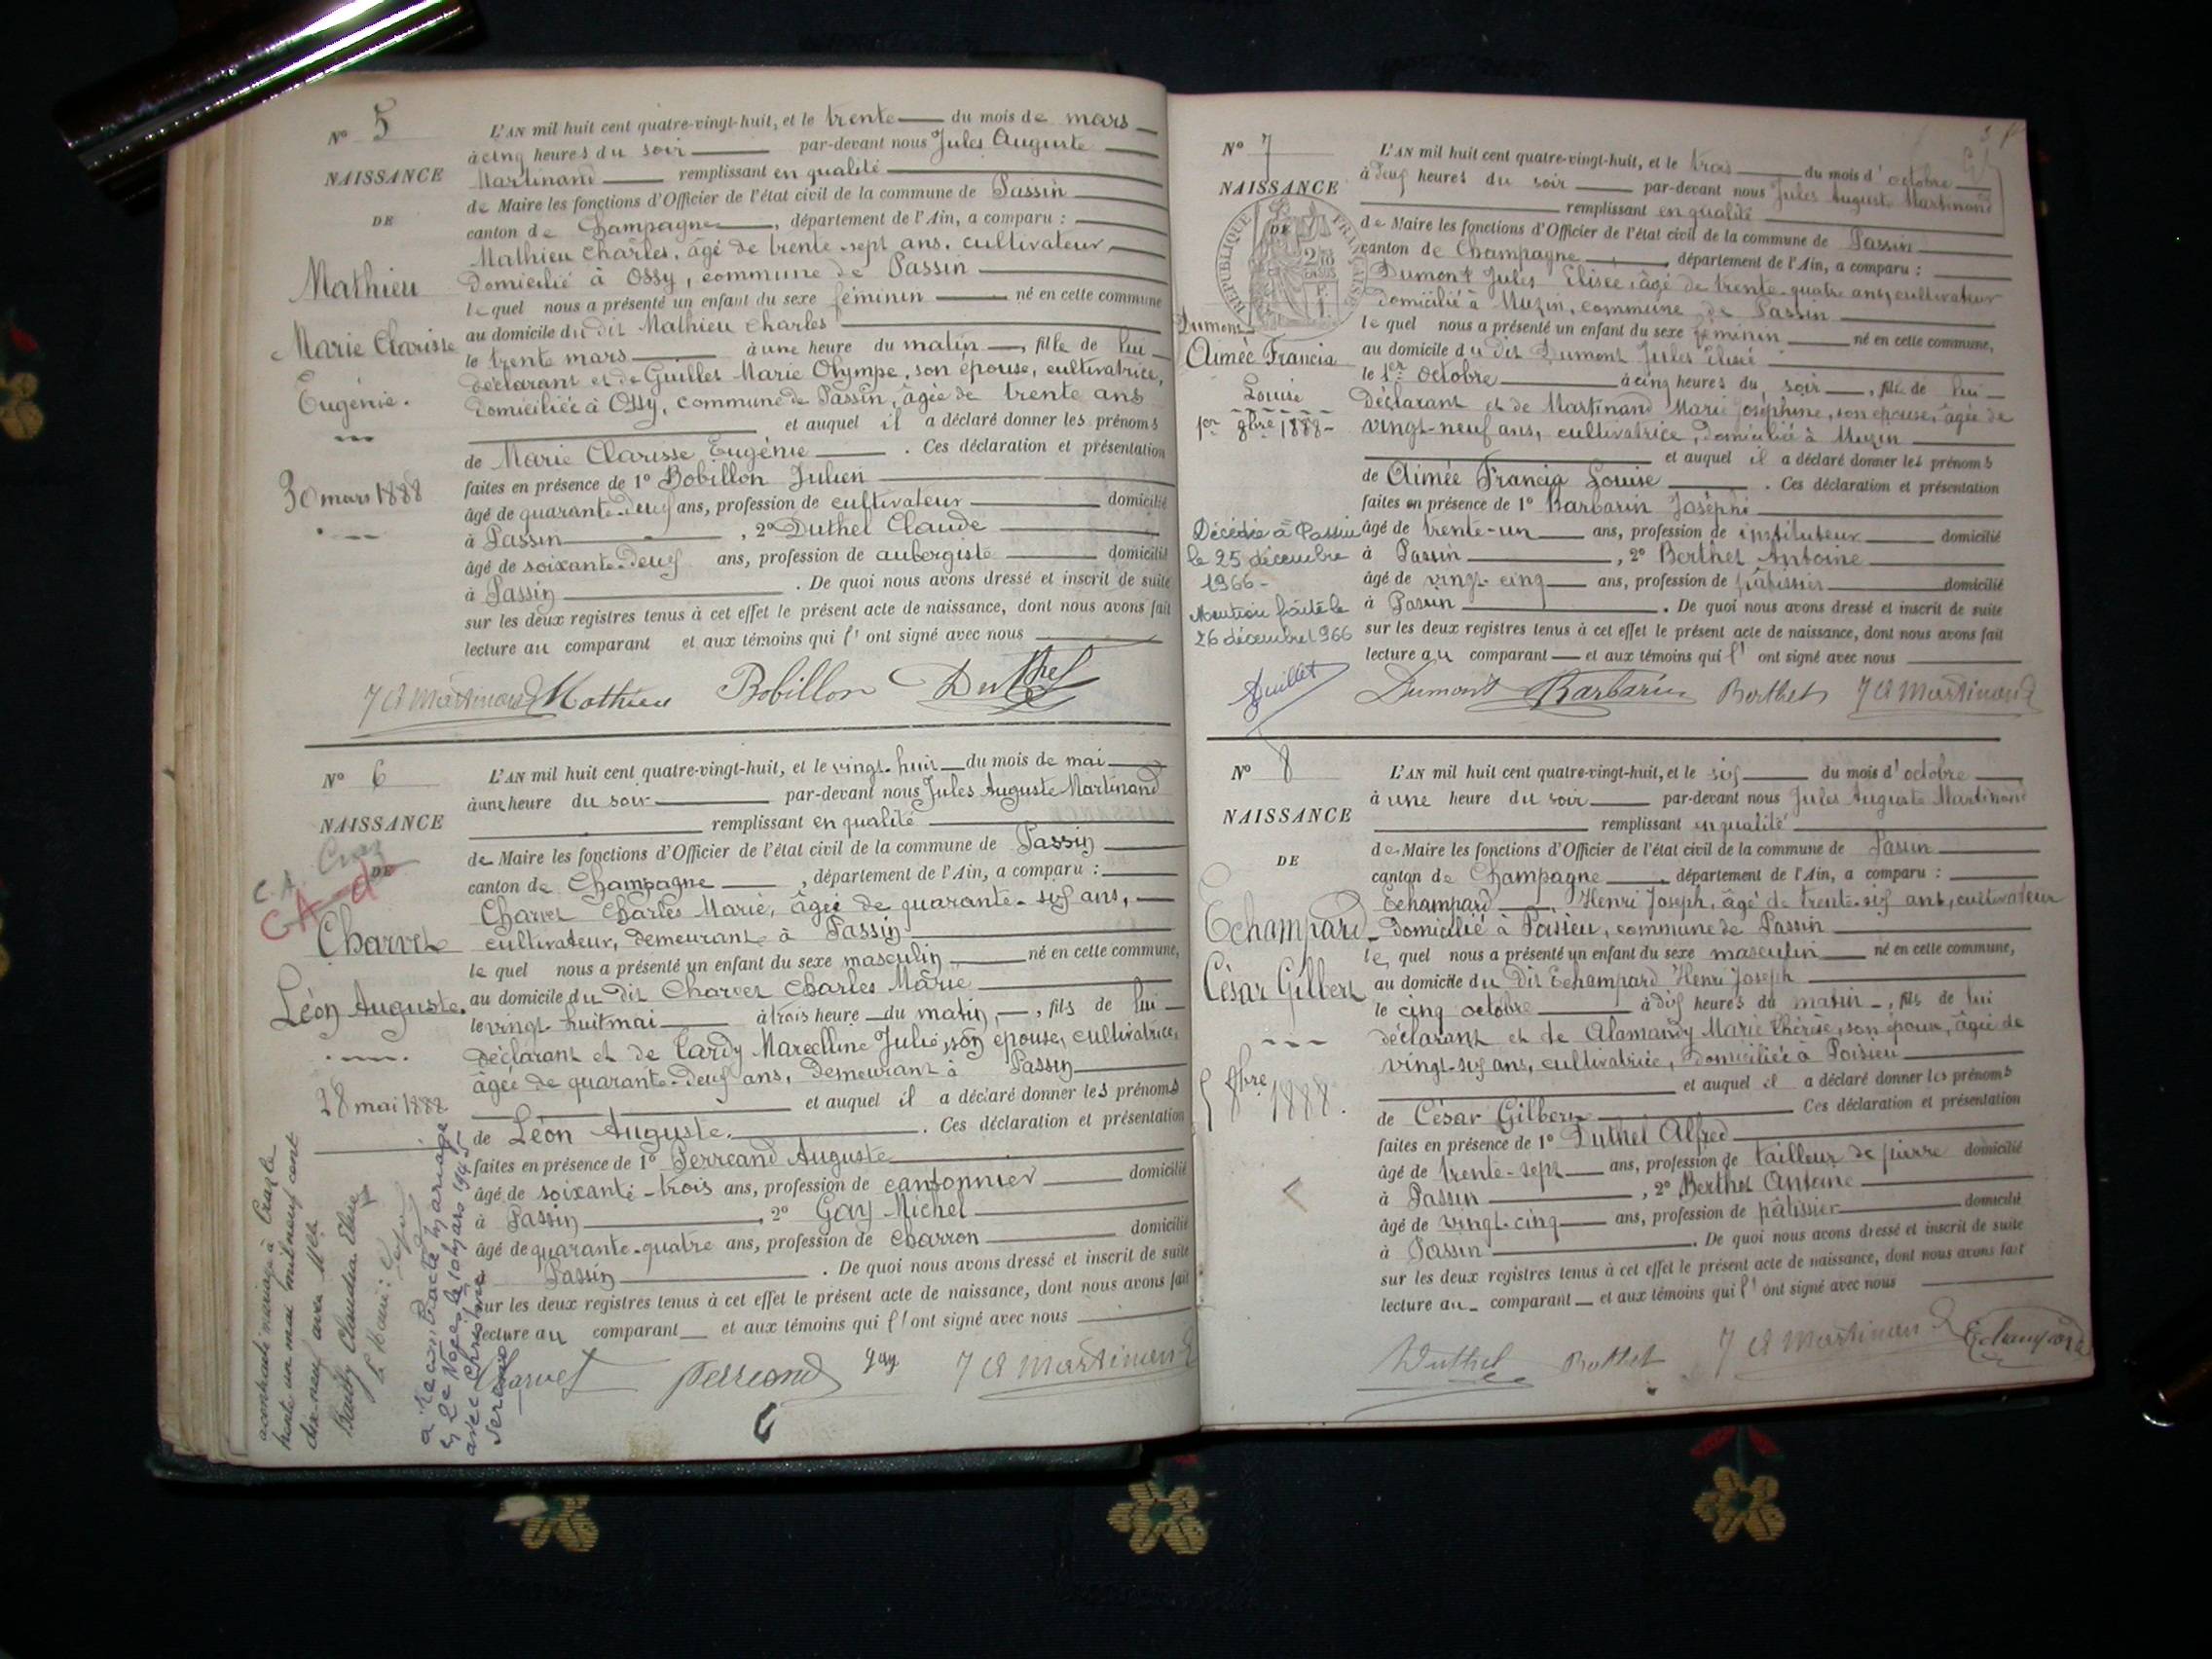 N° 5
NAISSANCE
DE
Mathieu
Marie Clarisse
Eugénie.
30 mars 1888
L'AN mil huit cent quatre-vingt-huit, et le trente du mois de mars
à cinq heures du soir par-devant nous Jules Auguste
Martinand remplissant en qualité
de Maire les fonctions d'Officier de l'état civil de la commune de Passin
canton de Champagne, département de l'Ain, a comparu :
Mathieu Charles, âgé de trente-sept ans, cultivateur
domicilié à Ossy, commune de Passin
lequel nous a présenté un enfant du sexe féminin né en cette commune
au domicile du dit Mathieu Charles
le trente mars à une heure du matin, fille de lui
déclarant et de Guillet Marie Olympe, son épouse, cultivatrice,
domiciliée à Ossy, commune de Passin, âgée de trente ans
et auquel il a déclaré donner les prénoms
de Marie Clarisse Eugénie. Ces déclaration et présentation
faites en présence de 1° Bobillon Julien
âgé de quarante-deux ans, profession de cultivateur domicilié
à Passin, 2° Duthel Claude
âgé de soixante-deux ans, profession de aubergiste domicilié
à Passin. De quoi nous avons dressé et inscrit de suite
sur les deux registres tenus à cet effet le présent acte de naissance, dont nous avons fait
lecture au comparant et aux témoins qui l'ont signé avec nous
J A Martinand Mathieu Bobillon Duthel
N° 6
NAISSANCE
DE
Charvet
Léon Auguste.
28 mai 1888
L'AN mil huit cent quatre-vingt-huit, et le vingt-huit du mois de mai
à une heure du soir par-devant nous Jules Auguste Martinand
remplissant en qualité
de Maire les fonctions d'Officier de l'état civil de la commune de Passin
canton de Champagne, département de l'Ain, a comparu :
Charvet Charles Marie, âgé de quarante-six ans,
cultivateur, demeurant à Passin
lequel nous a présenté un enfant du sexe masculin né en cette commune,
au domicile du dit Charvet Charles Marie
le vingt-huit mai à trois heure du matin, fils de lui
déclarant et de Cardy Marcelline Julie, son épouse, cultivatrice,
âgée de quarante-deux ans, demeurant à Passin
et auquel il a déclaré donner les prénoms
de Léon Auguste. Ces déclaration et présentation
faites en présence de 1° Perreand Auguste
âgé de soixante-trois ans, profession de cantonnier domicilié
à Passin, 2° Gay Michel
âgé de quarante-quatre ans, profession de charron domicilié
Passin. De quoi nous avons dressé et inscrit de suite
sur les deux registres tenus à cet effet le présent acte de naissance, dont nous avons fait
lecture au comparant et aux témoins qui l'ont signé avec nous
Charvet Perreand gay J A Martinand
a contracté mariage à Craz le
trente un mai mil neuf cent
dix-neuf avec Melle
Bailly Claudia Elise
le Maire :
a contracté mariage
le 10 Mars 1945
avec Christine
N° 7
NAISSANCE
DE
RÉPUBLIQUE FRANÇAISE
Dumont
Aimée Francia
Louise
1er 8bre 1888
Décédée à Passin
le 25 décembre
1966-
Mention faite le
26 décembre 1966
L'AN mil huit cent quatre-vingt-huit, et le trois du mois d'octobre
à deux heures du soir par-devant nous Jules Auguste Martinand
remplissant en qualité
de Maire les fonctions d'Officier de l'état civil de la commune de Passin
canton de Champagne, département de l'Ain, a comparu :
Dumont Jules Elisée âgé de trente-quatre ans, cultivateur
domicilié à Muzin, commune de Passin
lequel nous a présenté un enfant du sexe féminin né en cette commune,
au domicile du dit Dumont Jules Elisée
le 1er octobre à cinq heures du soir, fille de lui
déclarant et de Martinand Marie Joséphine, son épouse, âgée de
vingt-neuf ans, cultivatrice, domicilié à Muzin
et auquel il a déclaré donner les prénoms
de Aimée Francia Louise. Ces déclaration et présentation
faites en présence de 1° Barbarin Joseph
âgé de trente-un ans, profession de instituteur domicilié
à Passin, 2° Berthet Antoine
âgé de vingt-cinq ans, profession de pâtissier domicilié
à Passin. De quoi nous avons dressé et inscrit de suite
sur les deux registres tenus à cet effet le présent acte de naissance, dont nous avons fait
lecture au comparant et aux témoins qui l'ont signé avec nous
Guillet Dumont Barbarin Berthet J A Martinand
N° 8
NAISSANCE
DE
Echampard
César Gilbert
5 8bre 1888.
L'AN mil huit cent quatre-vingt-huit, et le six du mois d'octobre
à une heure du soir par-devant nous Jules Auguste Martinand
remplissant en qualité
de Maire les fonctions d'Officier de l'état civil de la commune de Passin
canton de Champagne, département de l'Ain, a comparu :
Echampard Henri Joseph, âgé de trente-six ans, cultivateur
domicilié à Poisieu, commune de Passin
lequel nous a présenté un enfant du sexe masculin né en cette commune,
au domicile du dit Echampard Henri Joseph
le cinq octobre à dix heures du matin, fils de lui
déclarant et de Alamandy Marie Thérèse, son épouse, âgée de
vingt-six ans, cultivatrice, domiciliée à Poisieu
et auquel il a déclaré donner les prénoms
de César Gilbert Ces déclaration et présentation
faites en présence de 1° Duthel Alfred
âgé de trente-sept ans, profession de tailleur de pierre domicilié
à Passin, 2° Berthet Antoine
âgé de vingt-cinq ans, profession de pâtissier domicilié
à Passin. De quoi nous avons dressé et inscrit de suite
sur les deux registres tenus à cet effet le présent acte de naissance, dont nous avons fait
lecture au comparant et aux témoins qui l'ont signé avec nous
Duthel Berthet J A Martinand Echampard